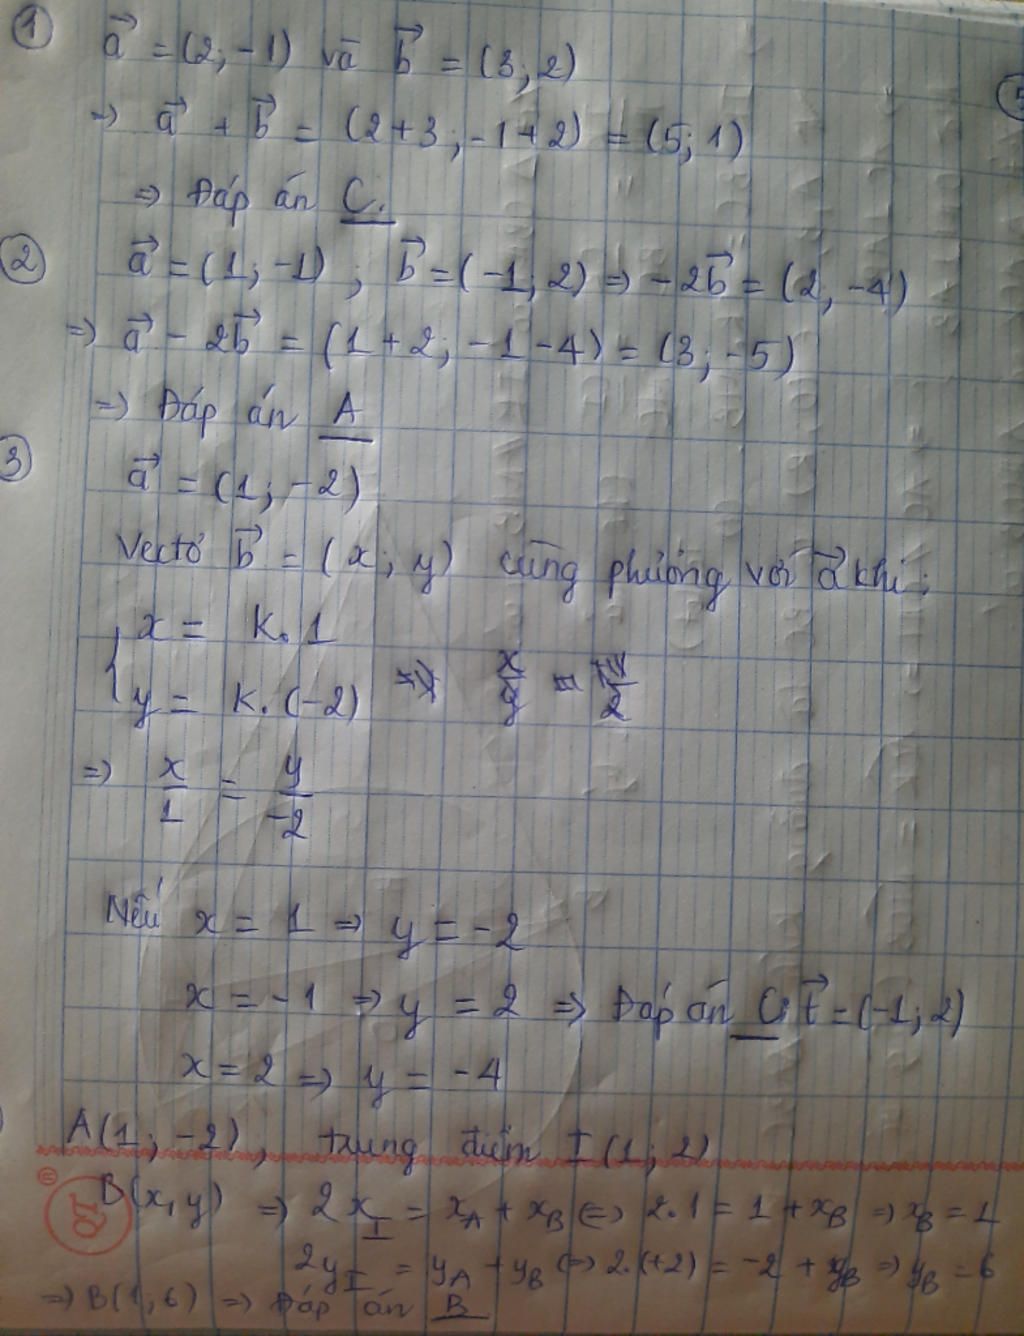 ① a⃗ = (2; -1) và b⃗ = (3; 2)
⑤
→ a⃗ + b⃗ = (2+3; -1+2) = (5; 1)
⇒ Đáp án C.
② a⃗ = (1; -1); b⃗ = (-1; 2) ⇒ -2b⃗ = (2; -4)
⇒ a⃗ - 2b⃗ = (1+2; -1-4) = (3; -5)
⇒ Đáp án A
③ a⃗ = (1; -2)
Vectơ b⃗ = (x; y) cùng phương với a⃗ khi:
{ x = k.1
y = k.(-2)
⇒ x/1 = y/-2
Nếu x = 1 ⇒ y = -2
x = -1 ⇒ y = 2 ⇒ Đáp án C: t⃗ = (-1; 2)
x = 2 ⇒ y = -4
A(1; -2), trung điểm I(1; 2)
B(x, y) ⇒ 2x_I = x_A + x_B ⇔ 2.1 = 1 + x_B ⇒ x_B = 1
2y_I = y_A + y_B ⇔ 2.(+2) = -2 + y_B ⇒ y_B = 6
⇒ B(1, 6) ⇒ Đáp án B